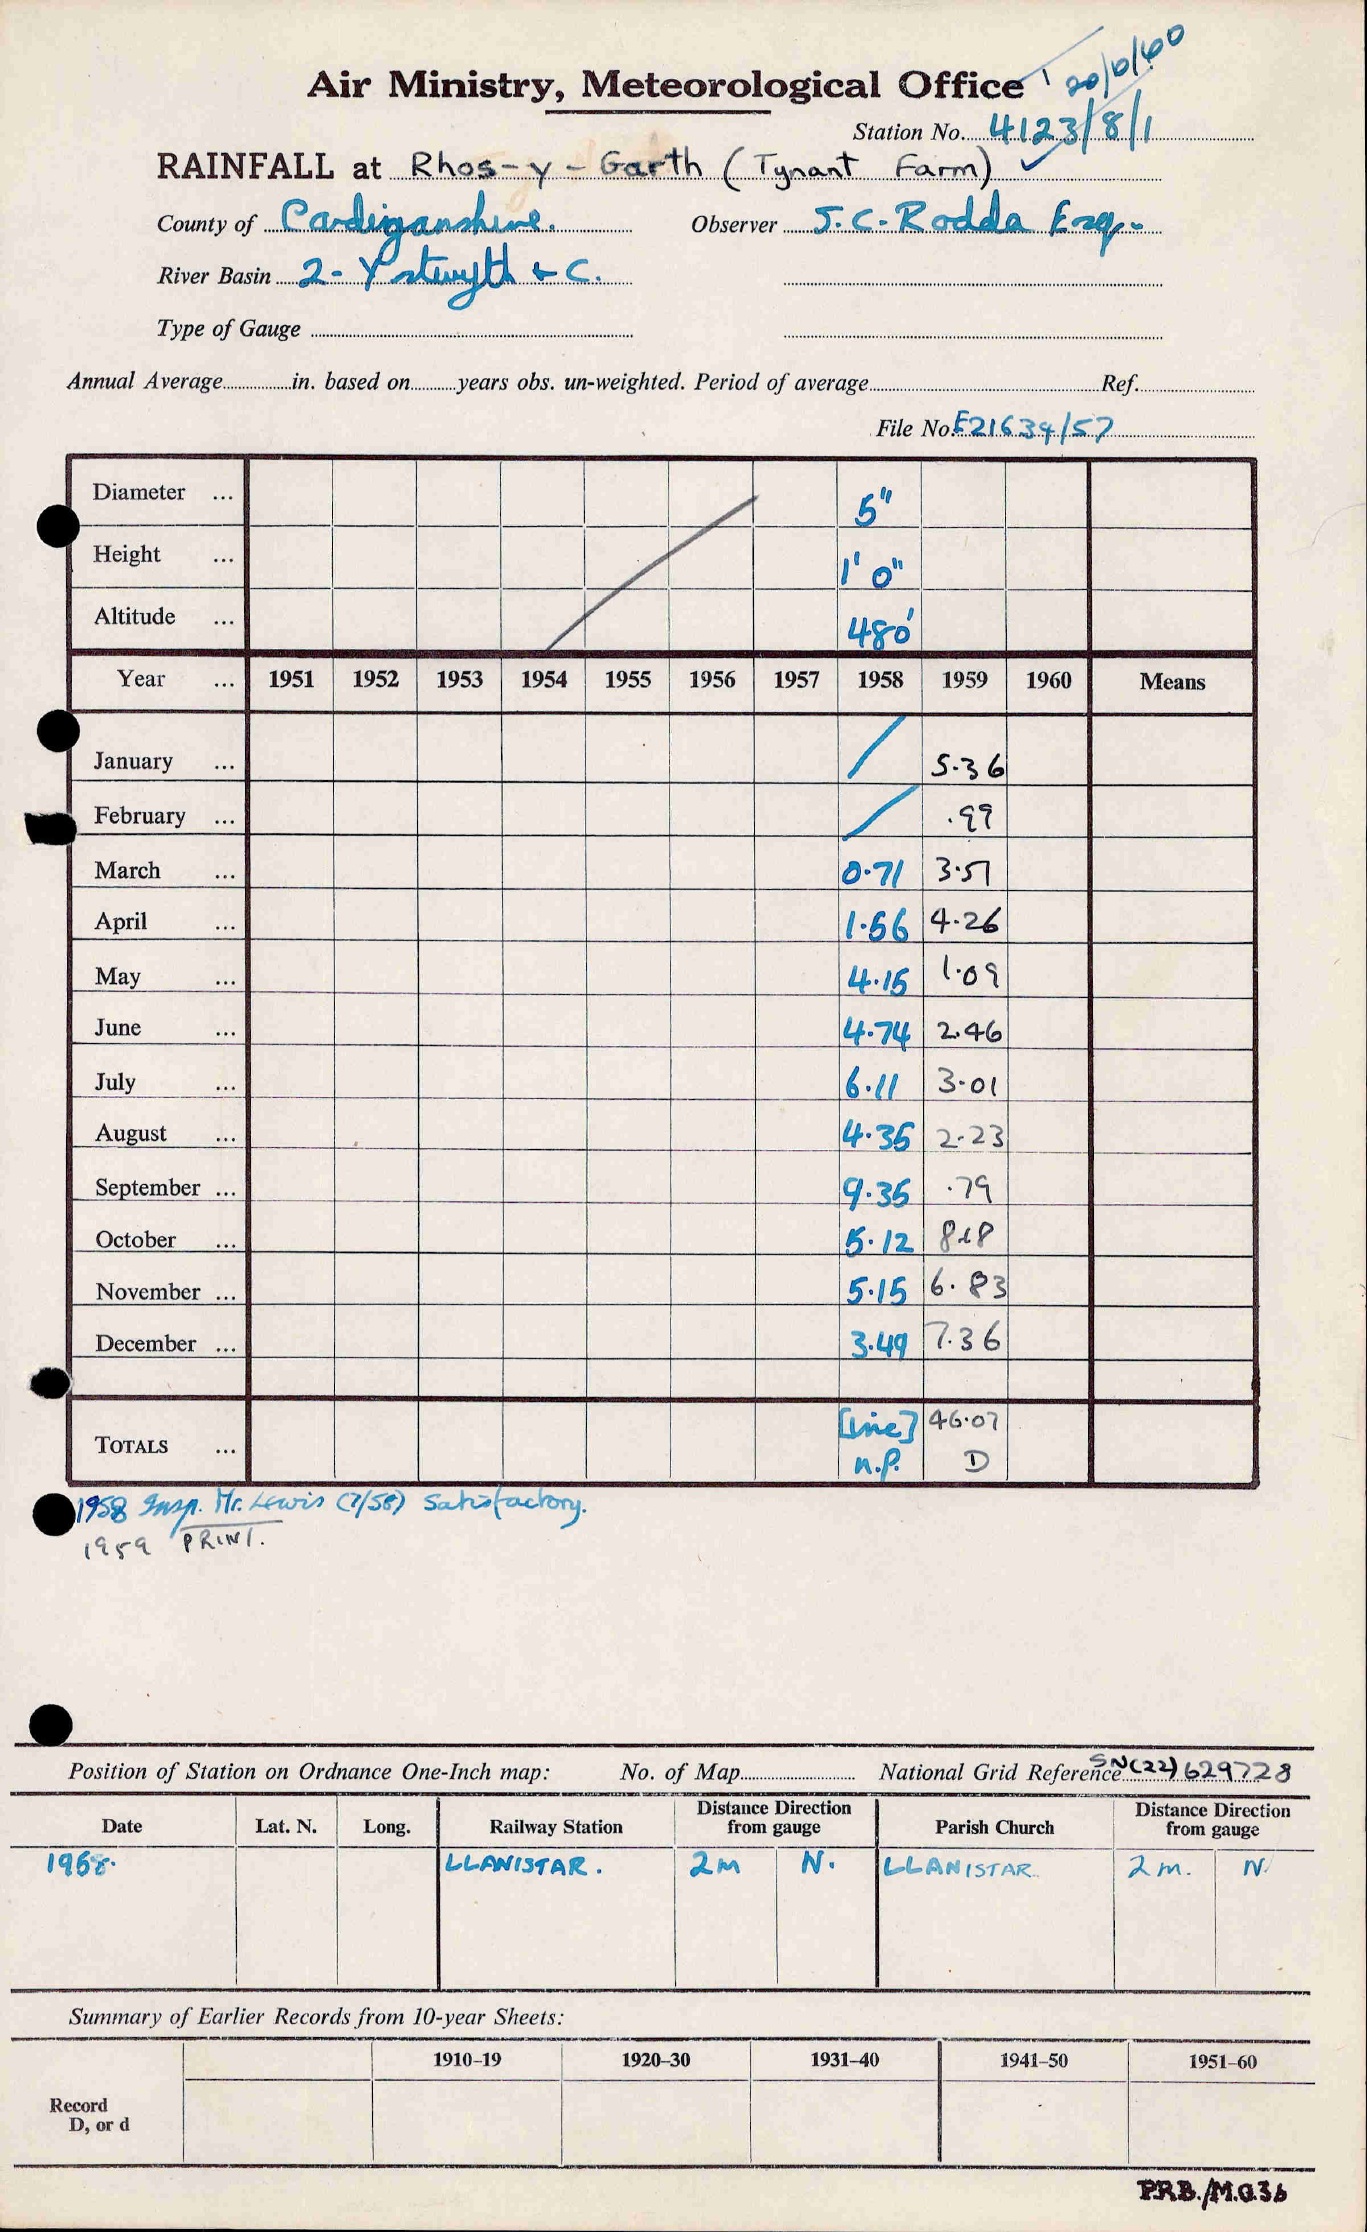 20/6/60
Air Ministry, Meteorological Office
Station No. 4123/8/1
RAINFALL at Rhos-y-Garth (Tynant Farm) ✓
County of Cardiganshire. Observer J.C. Rodda Esq.
River Basin 2- Ystwyth & C.
Type of Gauge
Annual Average in. based on years obs. un-weighted. Period of average Ref.
File No. E21634/57
Diameter ... 5"
Height ... 1' 0"
Altitude ... 480'
Year ... 1951 1952 1953 1954 1955 1956 1957 1958 1959 1960 Means
January ... / 5.36
February ... / .99
March ... 0.71 3.51
April ... 1.56 4.26
May ... 4.15 1.09
June ... 4.74 2.46
July ... 6.11 3.01
August ... 4.35 2.23
September ... 9.35 .79
October ... 5.12 8.18
November ... 5.15 6.83
December ... 3.49 7.36
TOTALS ... [Inc] 46.07
n.p. D
1958 Insp. Mr. Lewis (7/58) Satisfactory.
1959 PRINT.
Position of Station on Ordnance One-Inch map: No. of Map National Grid Reference SN(22)629728
Date Lat. N. Long. Railway Station Distance Direction from gauge Parish Church Distance Direction from gauge
1958. LLANISTAR. 2m N. LLANISTAR 2m. N
Summary of Earlier Records from 10-year Sheets:
1910–19 1920–30 1931–40 1941–50 1951–60
Record
D, or d
P.R.B./M.O.36